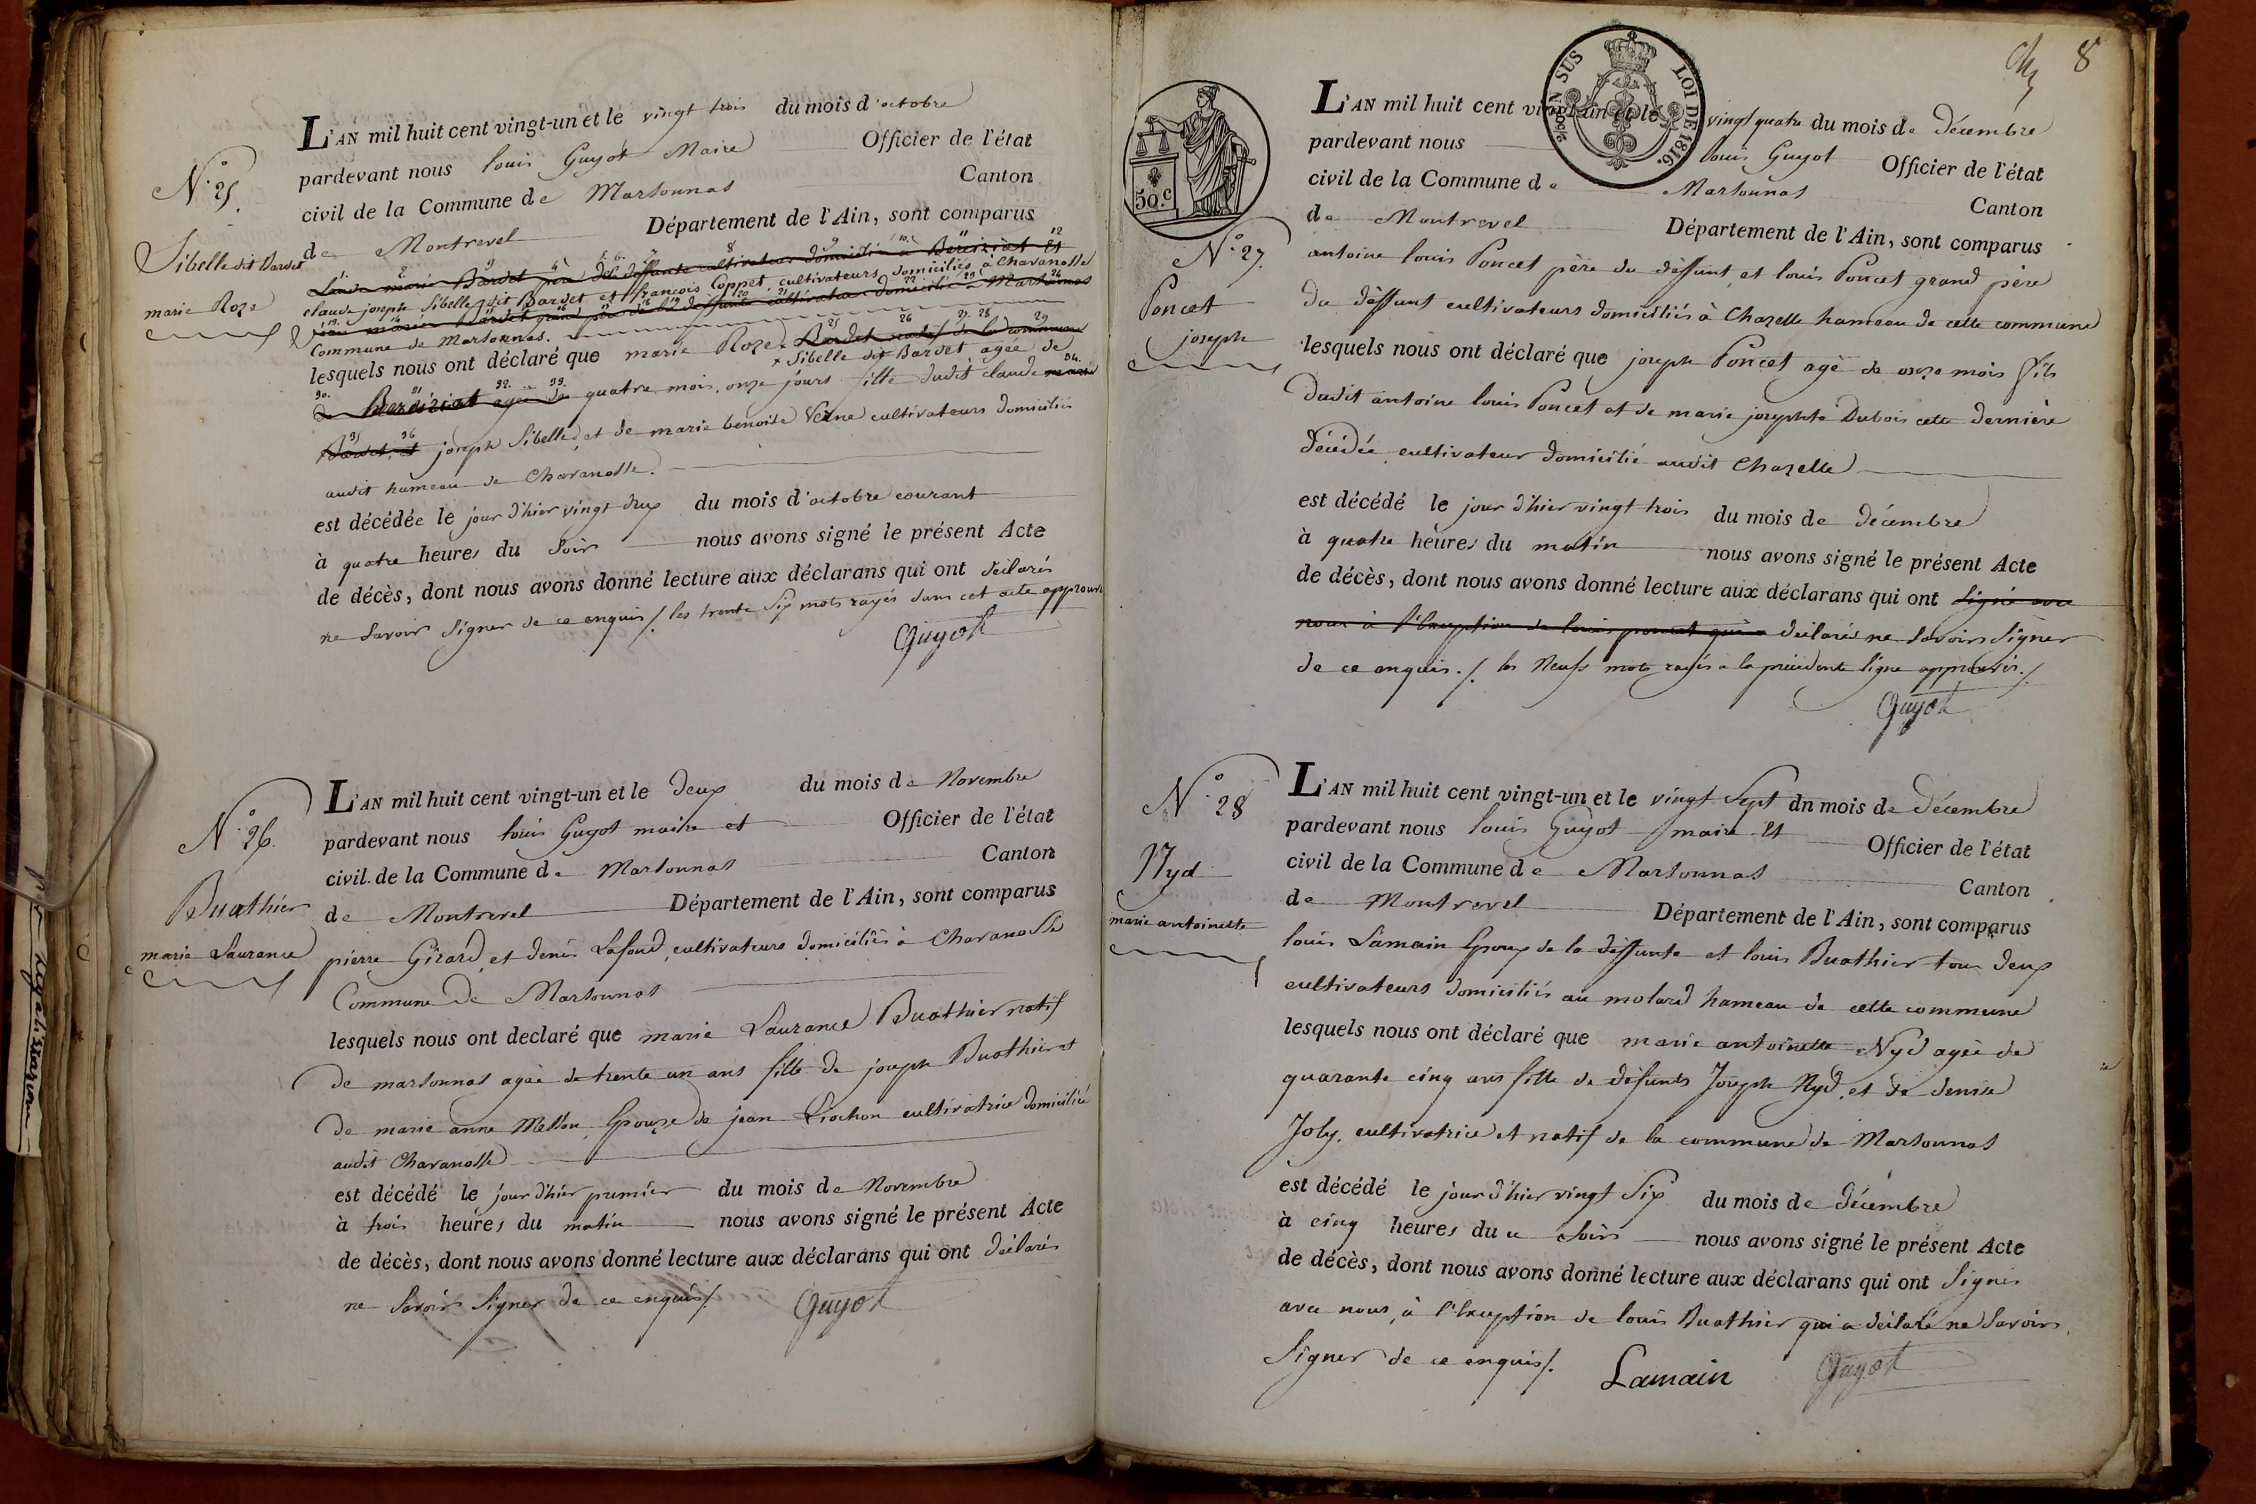 L'AN mil huit cent vingt-un et le vingt trois du mois d'octobre
pardevant nous louis Guyot Maire Officier de l'état
civil de la Commune de Marsonnas Canton
de Montrevel Département de l'Ain, sont comparus
N.° 25.
Sibelle dit Bardet
marie Roze
claude joseph Sibelle dit Bardet et françois Coppet, cultivateurs domiciliés à Chavanosse
Commune de Marsonnas.
lesquels nous ont déclaré que marie Roze Bardet natif de la commune
x Sibelle dit Bardet agée de
de Bereiziat agée de quatre mois onze jours fille dudit claude marie
Bardet, et joseph Sibelle, et de marie benoite Verne cultivateurs domiciliés
audit hameau de Chavanosse.
est décédée le jour d'hier vingt deux du mois d'octobre courant
à quatre heures du Soir nous avons signé le présent Acte
de décès, dont nous avons donné lecture aux déclarans qui ont déclarés
ne Savoir Signer de ce enquis /. les trente Six mots rayés dans cet acte approuvé
Guyot
L'AN mil huit cent vingt-un et le deux du mois de Novembre
N.° 26.
pardevant nous louis Guyot maire et Officier de l'état
civil de la Commune de Marsonnas Canton
Buathier
de Montrevel Département de l'Ain, sont comparus
marie Laurance
pierre Girard, et denis Lafond, cultivateurs domiciliés à Chavanosse
Commune de Marsonnas
lesquels nous ont declaré que marie Laurance Buathier natif
de marsonnas agée de trente un ans fille de joseph Buathier et
de marie anne Mellon, Epouze de jean Piochon cultivatrice domiciliée
audit Chavanosse
est décédé le jour d'hier premier du mois de Novembre
à trois heures du matin nous avons signé le présent Acte
de décès, dont nous avons donné lecture aux déclarans qui ont déclarés
ne Savoir Signer de ce enquis /.
Guyot
8
EN SUS
LOI DE 1816.
50.c
L'AN mil huit cent vingt-un et le vingt quatre du mois de Décembre
pardevant nous louis Guyot Officier de l'état
civil de la Commune de Marsonnas Canton
de Montrevel Département de l'Ain, sont comparus
N.° 27.
Poncet
joseph
antoine louis Poncet père du déffunt, et louis Poncet grand père
du déffunt cultivateurs domiciliés à Chazelle hameau de cette commune
lesquels nous ont déclaré que joseph Poncet agé de onze mois fils
dudit antoine louis Poncet et de marie josephte Dubois cette dernière
décédée, cultivateur domicilié audit Chazelle
est décédé le jour d'hier vingt trois du mois de décembre
à quatre heures du matin nous avons signé le présent Acte
de décès, dont nous avons donné lecture aux déclarans qui ont signé avec
nous à l'Exception de louis poncet qui a déclarés ne Savoir Signer
de ce enquis. /. les Neufs mots rayés à la précédente ligne approuvés. /.
Guyot
N.° 28
L'AN mil huit cent vingt-un et le vingt Sept du mois de Décembre
pardevant nous louis Guyot maire et Officier de l'état
civil de la Commune de Marsonnas Canton
Nyd
de Montrevel Département de l'Ain, sont comparus
marie antoinette
louis Lamain Epoux de la déffunte et louis Buathier tous deux
cultivateurs domiciliés au molard hameau de cette commune
lesquels nous ont déclaré que marie antoinette Nyd agée de
quarante cinq ans fille de défunts Joseph Nyd, et de denise
Joly, cultivatrice et natif de la commune de Marsonnas
est décédé le jour d'hier vingt Six du mois de décembre
à cinq heures du Soir nous avons signé le présent Acte
de décès, dont nous avons donné lecture aux déclarans qui ont Signés
avec nous, à l'Exception de louis Buathier qui a déclaré ne Savoir
Signer de ce enquis /.
Lamain Guyot